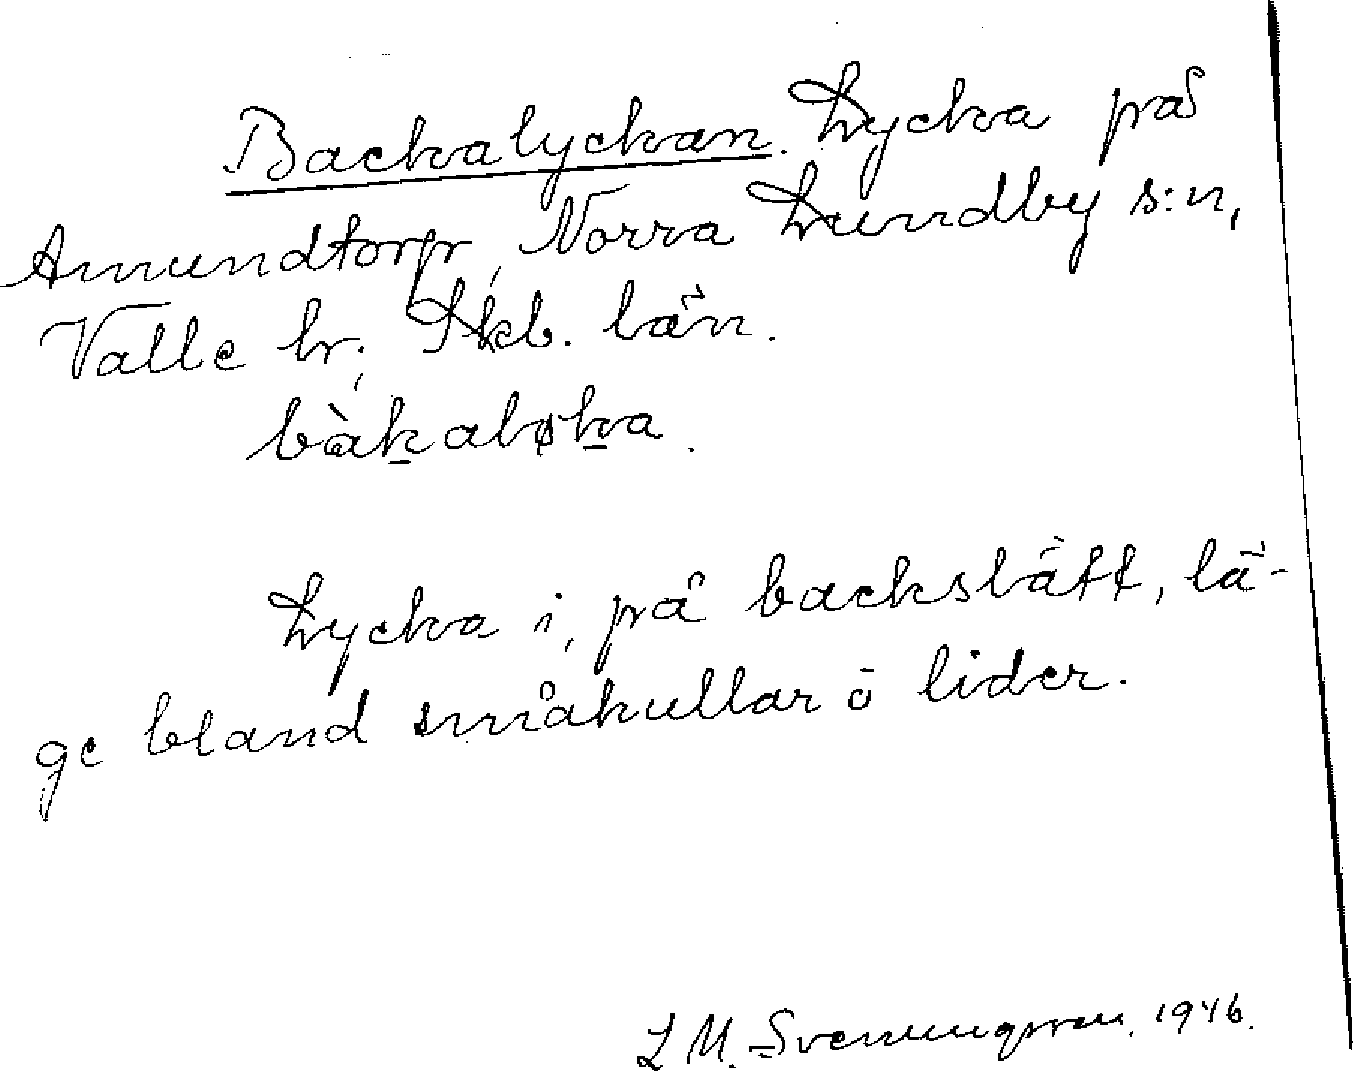 Backalyckan. Lycka på
Amundtorp, Norra Lundby s:n,
Valle hr; Skb. län.
bàkaløka.
Lycka i, på backslätt, lä-
ge bland småkullar ō lider.
L M. Svenungsson. 1946.